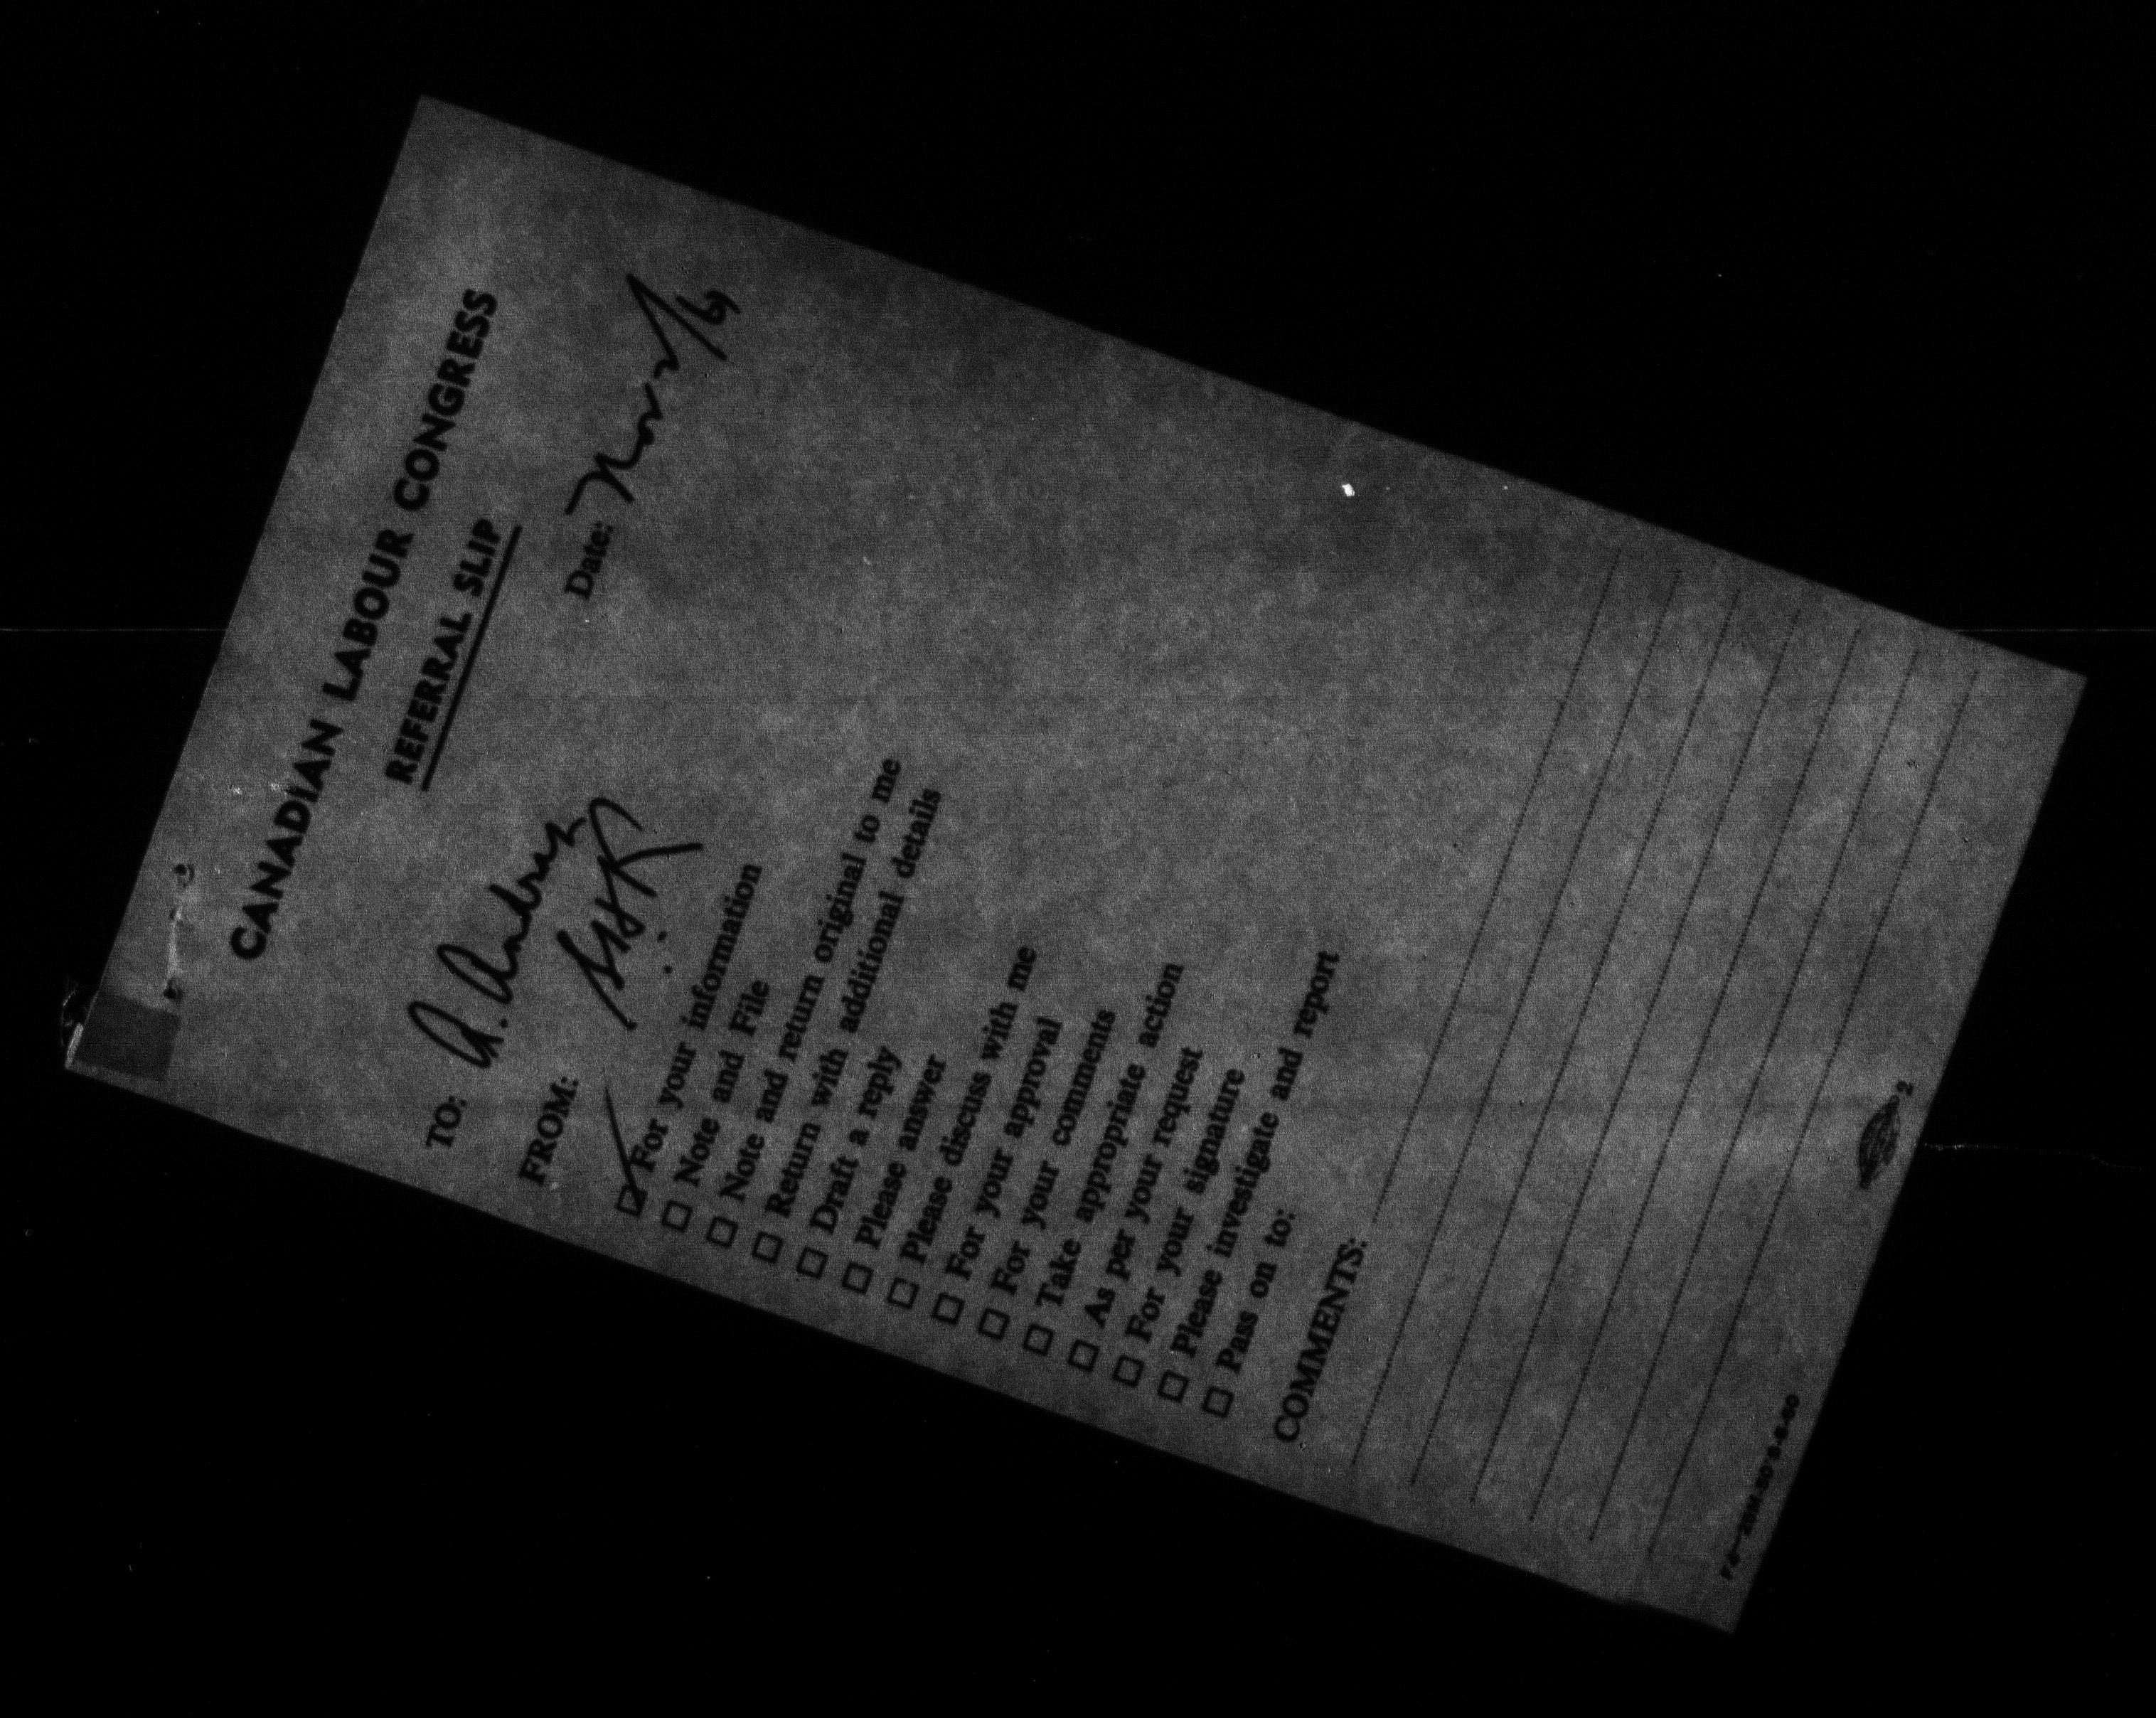 CANADIAN LABOUR CONGRESS
REFERRAL SLIP
Date: Nov
TO: A. Andras
FROM:
For your information
Note and File
Note and return original to me
Return with additional details
Draft a reply
Please answer
Please discuss with me
For your approval
For your comments
Take appropriate action
As per your request
For your signature
Please investigate and report
Pass on to:
COMMENTS:
2